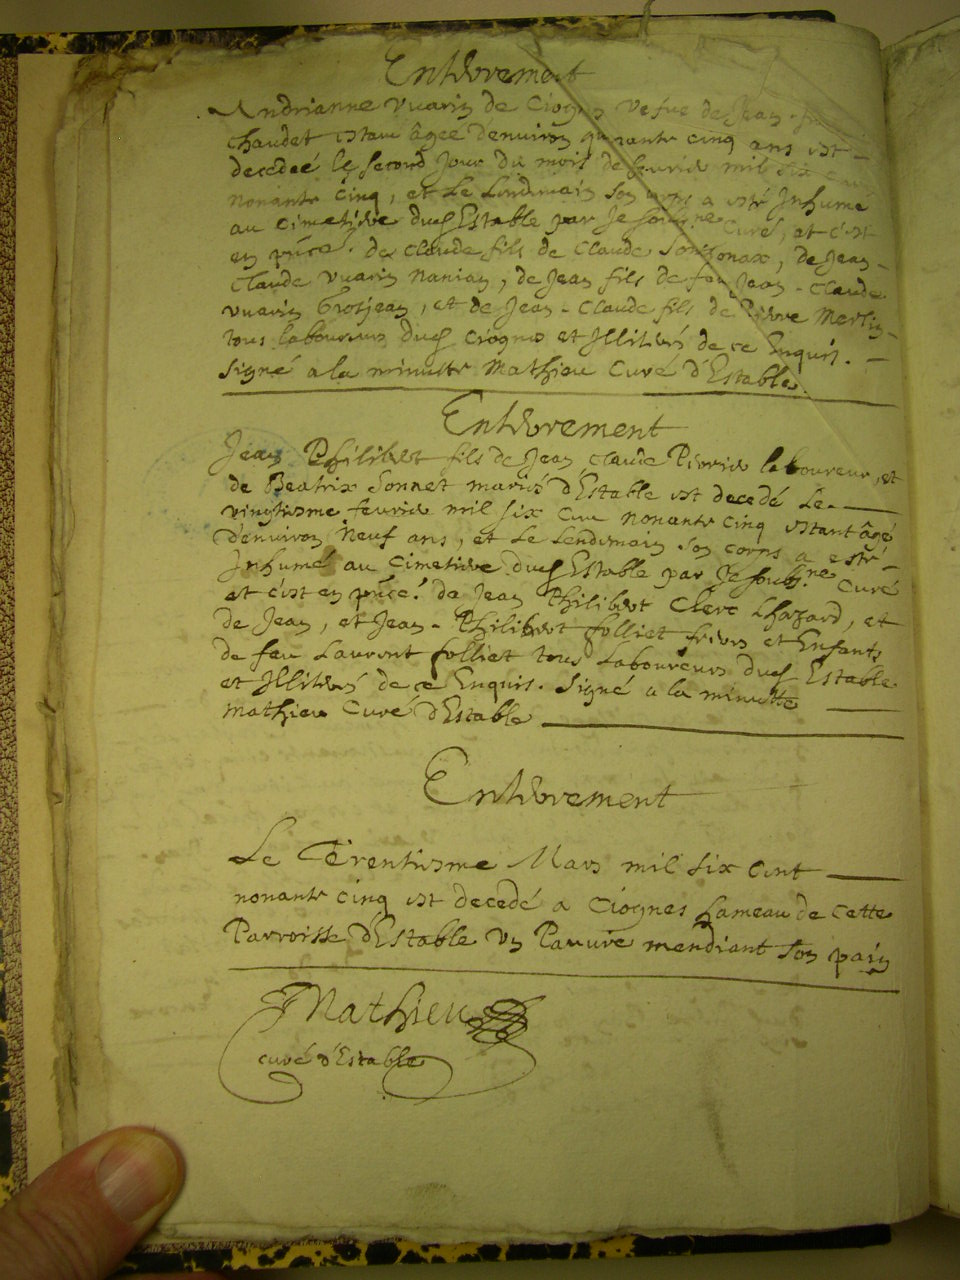 Enterrement
Andrianne Vuarin de Ciognes vefue de Jean
Chaudet estant âgee d'environ quarante cinq ans est
decedeé le second jour du mois de feurier mil six cent
nonante cinq, et le lendemain son corps a esté Inhumé
au cimetiere dud Estable par Je soubne Curé, et c'est
en pnce. de Claude fils de Claude Sonzonax, de Jean-
Claude Vuarin Nanian, de Jean fils de feu Jean-Claude
Vuarin Grosjean, et de Jean-Claude fils de Pierre Merlin
tous laboureurs dud Ciognes et Illiterés de ce Enquis.
Signé a la minutte Mathieu Curé d'Estable.
Enterrement
Jean Philibert fils de Jean Claude Perrier laboureur, et
de Beatrix Sonnet mariés d'Estable est decedé le
vingtiesme feurier mil six cent nonante cinq estant âgé
d'environ Neuf ans, et le lendemain son corps a esté
Inhumé au cimetiere dud Estable par Je soubne Curé
et c'est en pnce. de Jean Philibert Clerc Lhazard, et
de Jean, et Jean-Philibert folliet freres et Enfants
de feu Laurent folliet tous Laboureurs dud Estable
et Illiterés de ce Enquis. Signé a la minutte
Mathieu Curé d'Estable
Enterrement
Le Trentiesme Mars mil six cent
nonante cinq est decedé a Ciognes hameau de cette
Parroisse d'Estable un Pauure mendiant son pain
Mathieu
curé d'Estable